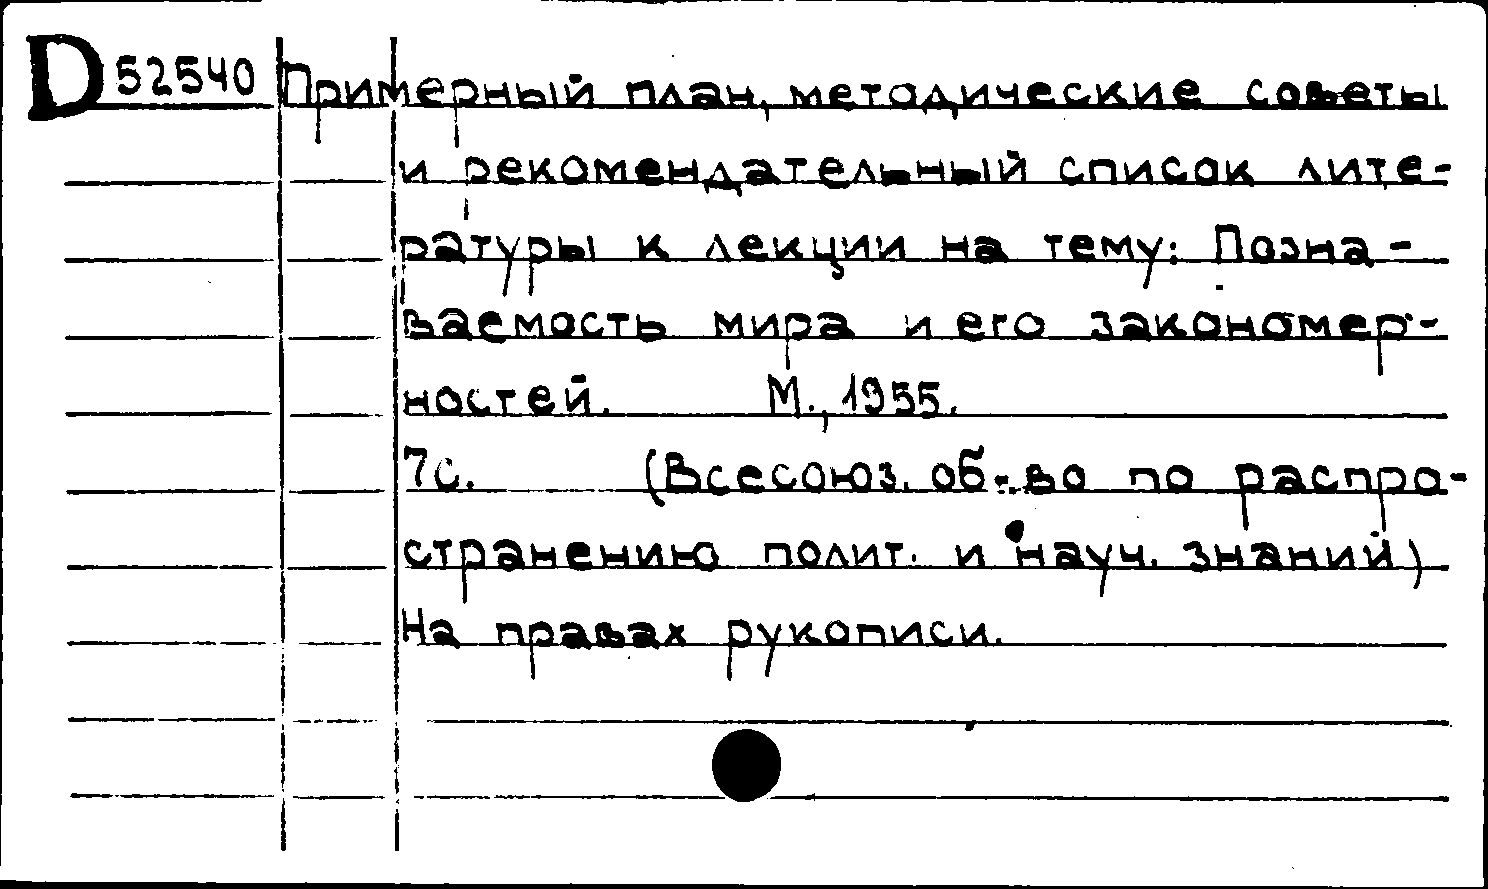 D 52540 Примерный план, методические советы
и рекомендательный список лите-
ратуры к лекции на тему: Позна-
ваемость мира и его закономер-
ностей. М., 1955.
7с. (Всесоюз. об-во по распро-
странению полит. и науч. знаний)
На правах рукописи.